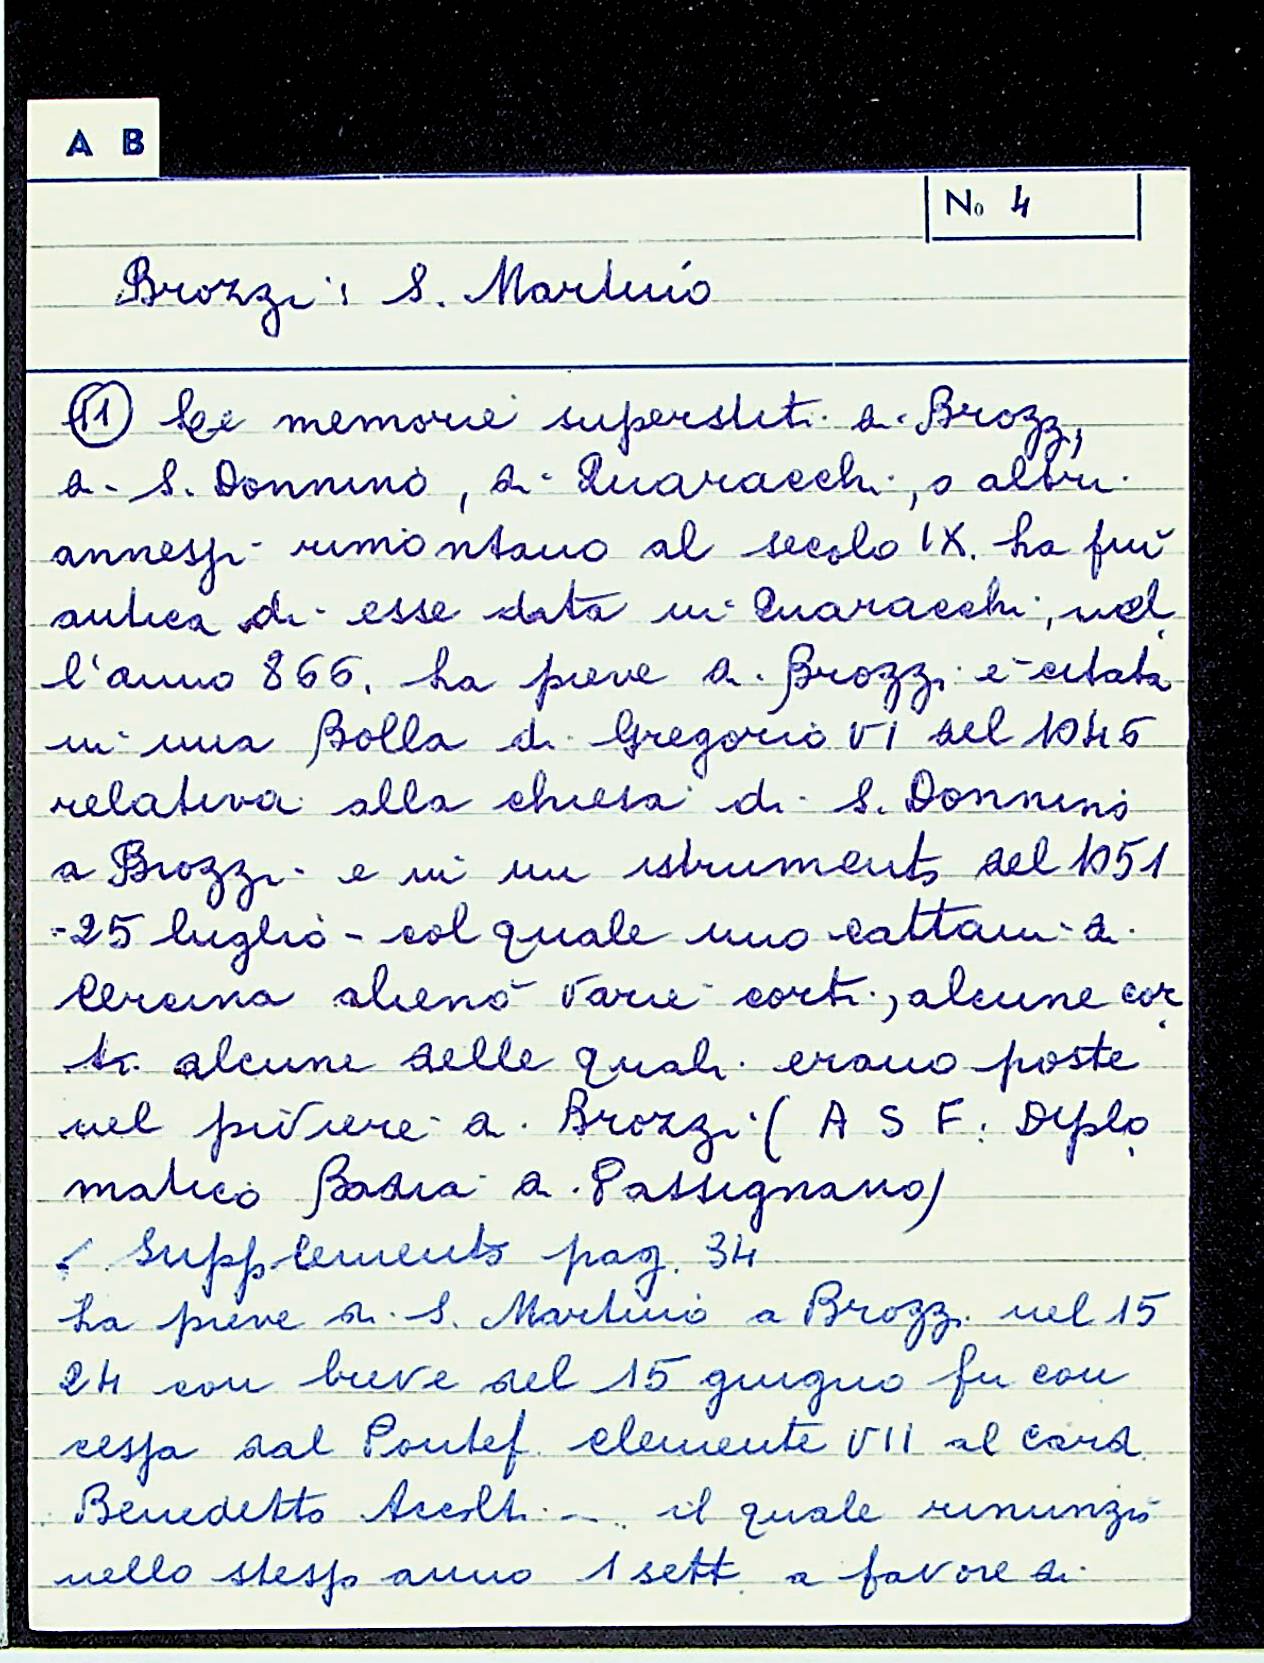 A B
No 4
Brozzi: S. Martino
11 Le memorie superstiti di Brozzi,
di S. Donnino, di Quaracchi, o altri
annessi rimontano al secolo IX. La più
antica di esse data in Quaracchi, nel
l'anno 866. La pieve di Brozzi è citata
in una Bolla di Gregorio VI del 1046
relativa alla chiesa di S. Donnino
a Brozzi e in un istrumento del 1051
-25 luglio - col quale uno cattani di
Cercina alienò varie corti, alcune cor
ti alcune delle quali erano poste
nel piviere di Brozzi (A S F. Diplo
matico Badia di Passignano)
Supplemento pag. 34
La pieve di S. Martino a Brozzi nel 15
24 con breve del 15 giugno fu con
cessa dal Pontef. Clemente VII al Card.
Benedetto Accolti - .. il quale rinunziò
nello stesso anno 1 sett. a favore di